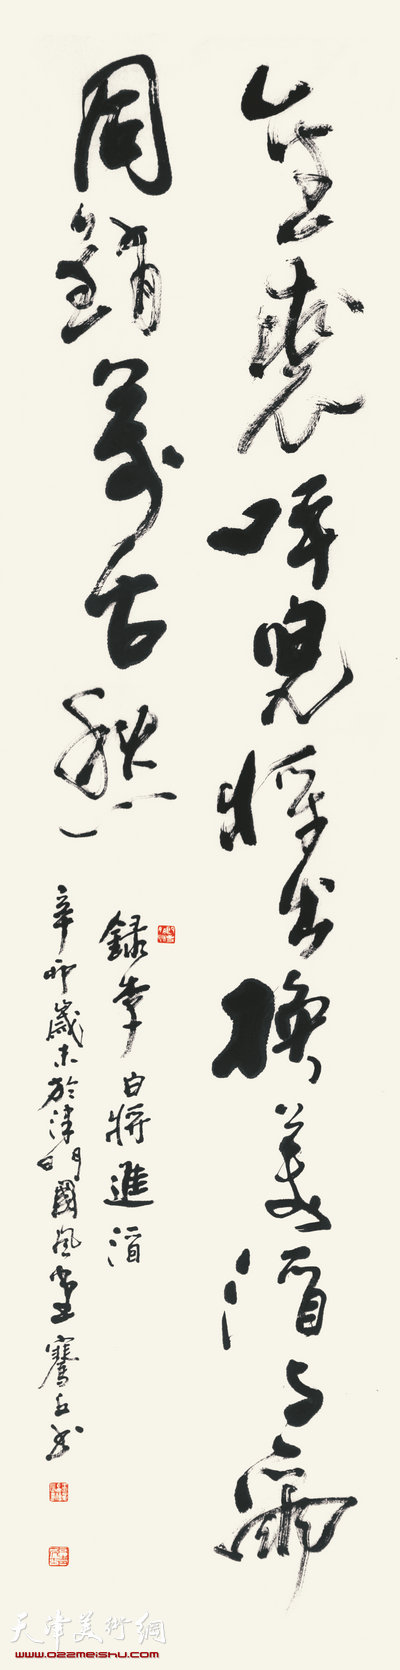 金裘呼兒將出換美酒与爾
同銷萬古愁
錄李白將進酒
辛卯歲末於津門國風堂騫書
天津美術網
www.022meishu.com